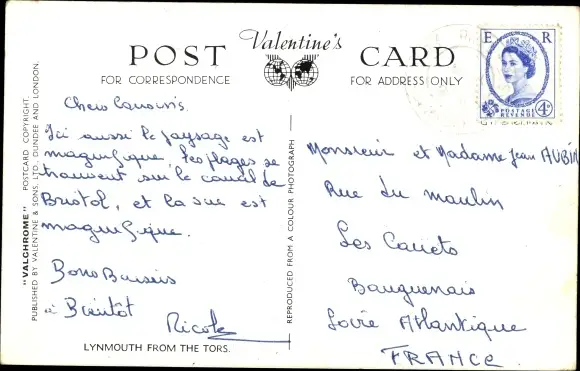 POST Valentine's CARD
FOR CORRESPONDENCE
FOR ADDRESS ONLY
E R
POSTAGE
REVENUE
4D
"VALCHROME" POSTCARD COPYRIGHT.
PUBLISHED BY VALENTINE & SONS, LTD., DUNDEE AND LONDON.
Chers Cousins.
Ici aussi le paysage est
magnifique. Les plages se
trouvent sur le canal de
Bristol, et la vue est
magnifique.
Bons Baisers
à Bientôt
Nicole
LYNMOUTH FROM THE TORS.
REPRODUCED FROM A COLOUR PHOTOGRAPH
Monsieur et Madame Jean AUBIN
Rue du moulin
Les
Bouguenais
Loire Atlantique
FRANCE.